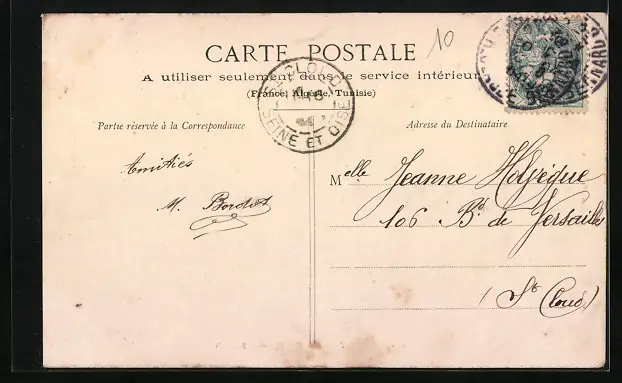 10
CARTE POSTALE
A utiliser seulement dans le service intérieur
(France, Algérie, Tunisie)
ST CLOUD
SEINE ET OISE
Partie réservée à la Correspondance
Adresse du Destinataire
Amitiés
M. Bordot
Melle Jeanne Holvèque
106 Bd de Versailles
(St Cloud)